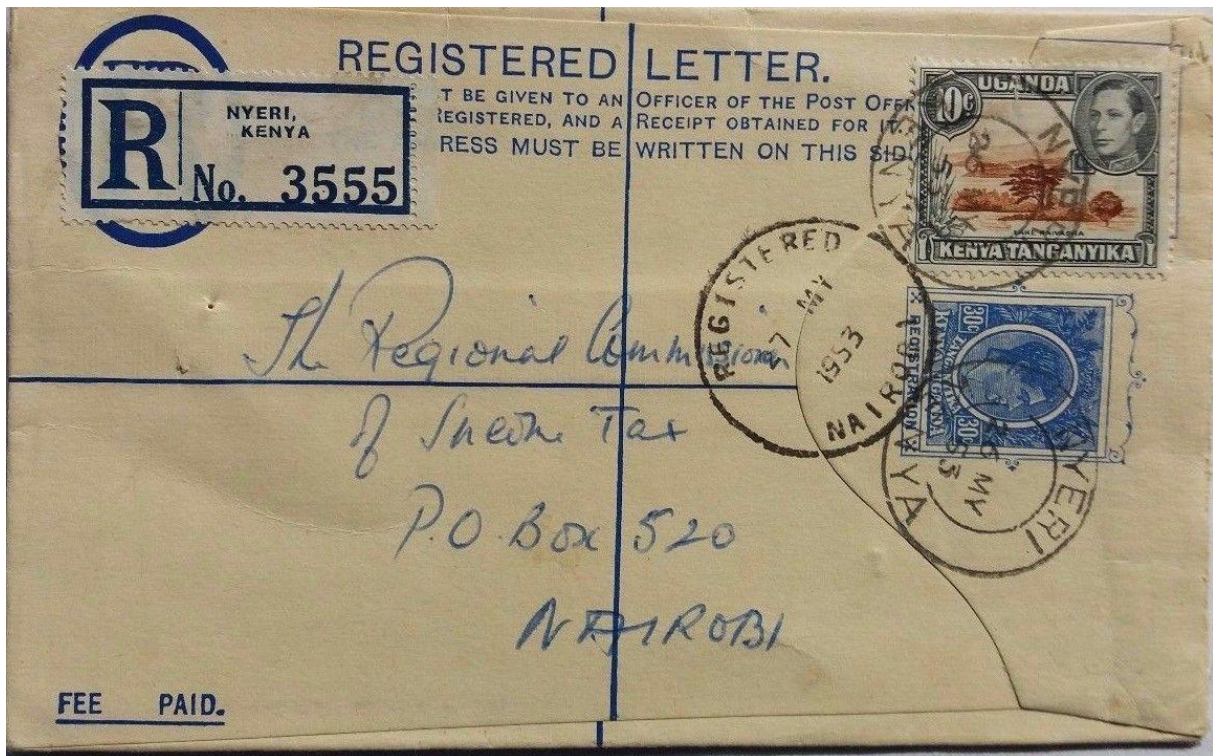 REGISTERED LETTER.
T BE GIVEN TO AN OFFICER OF THE POST OFF
REGISTERED, AND A RECEIPT OBTAINED FOR IT.
RESS MUST BE WRITTEN ON THIS SID
R
NYERI,
KENYA
No. 3555
UGANDA
10c
LAKE NAIVASHA
KENYA TANGANYIKA
NYERI
26 MY
53
REGISTERED
27 MY
1953
NAIROBI
30c
KENYA UGANDA
30c
REGISTRATION
NYERI
26 MY
53
The Regional Commissioner
of Income Tax
P.O. Box 520
NAIROBI
FEE PAID.